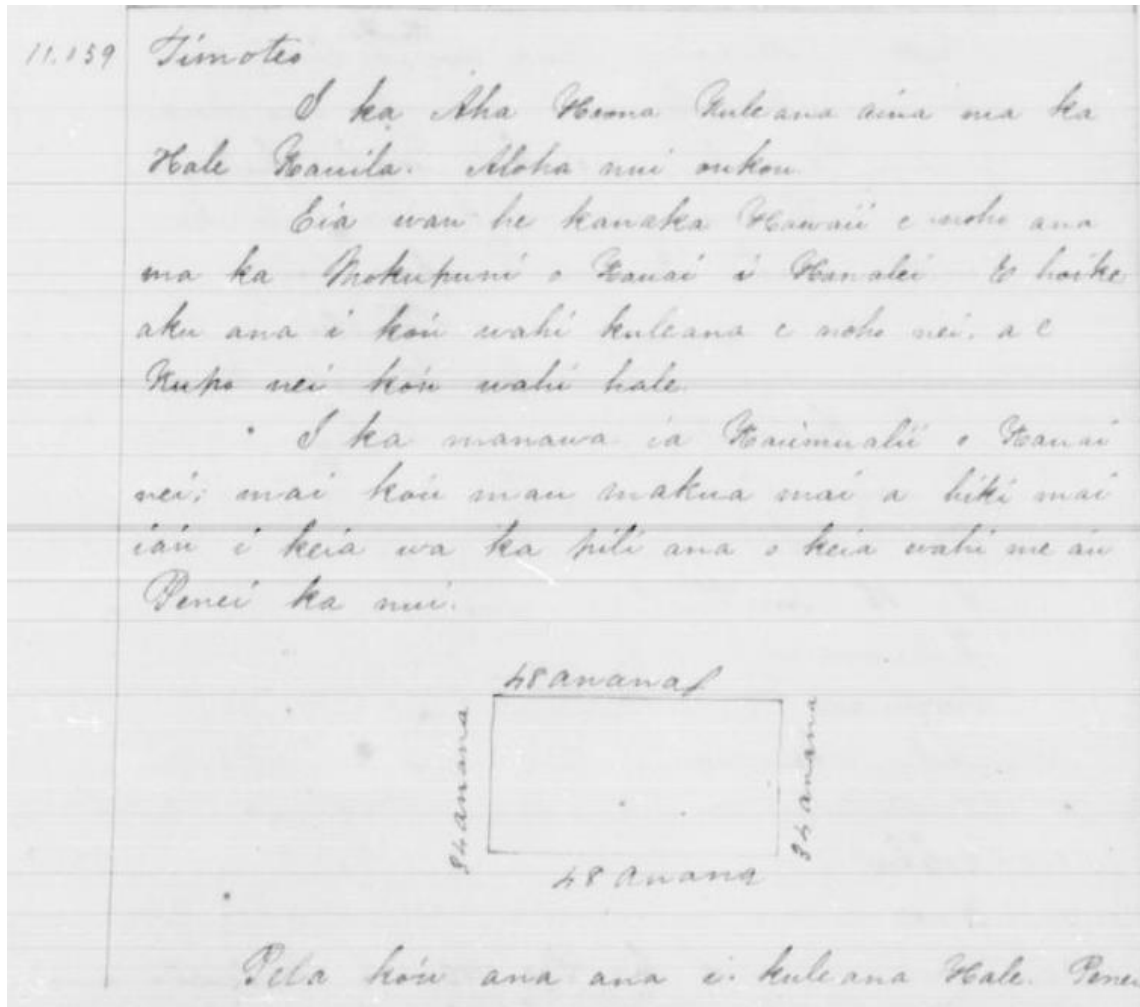 11.139 Timoteo
I ka Aha Hoona Kuleana aina ma ka
Hale Kauila. Aloha nui oukou.
Eia wau he kanaka Hawaii e noho ana
ma ka Mokupuni o Kauai i Hanalei. E hoike
aku ana i koú wahi kuleana e noho nei. a e
Kupo nei koú wahi hale.
I ka manawa ia Kaúmualii o Kauai
nei; mai koú mau makua mai a hiki mai
iaú i keia wa ka pili ana o keia wahi me aú
Penei ka nui.
48 anana
34 anana
34 anana
48 anana
Pela koú ana ana i kuleana Hale. Penei